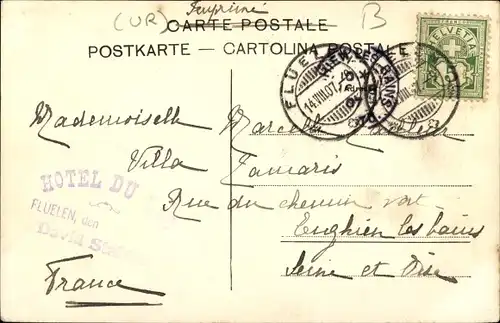 Imprimé
(UR)
B
CARTE POSTALE
POSTKARTE - CARTOLINA POSTALE
HELVETIA
5
FLUELEN
14.VIII.07
Mademoiselle Marcelle
Villa Tamaris
HOTEL DU
Rue du chemin vert
FLUELEN, den
David
Enghien les bains
France
Seine et Oise